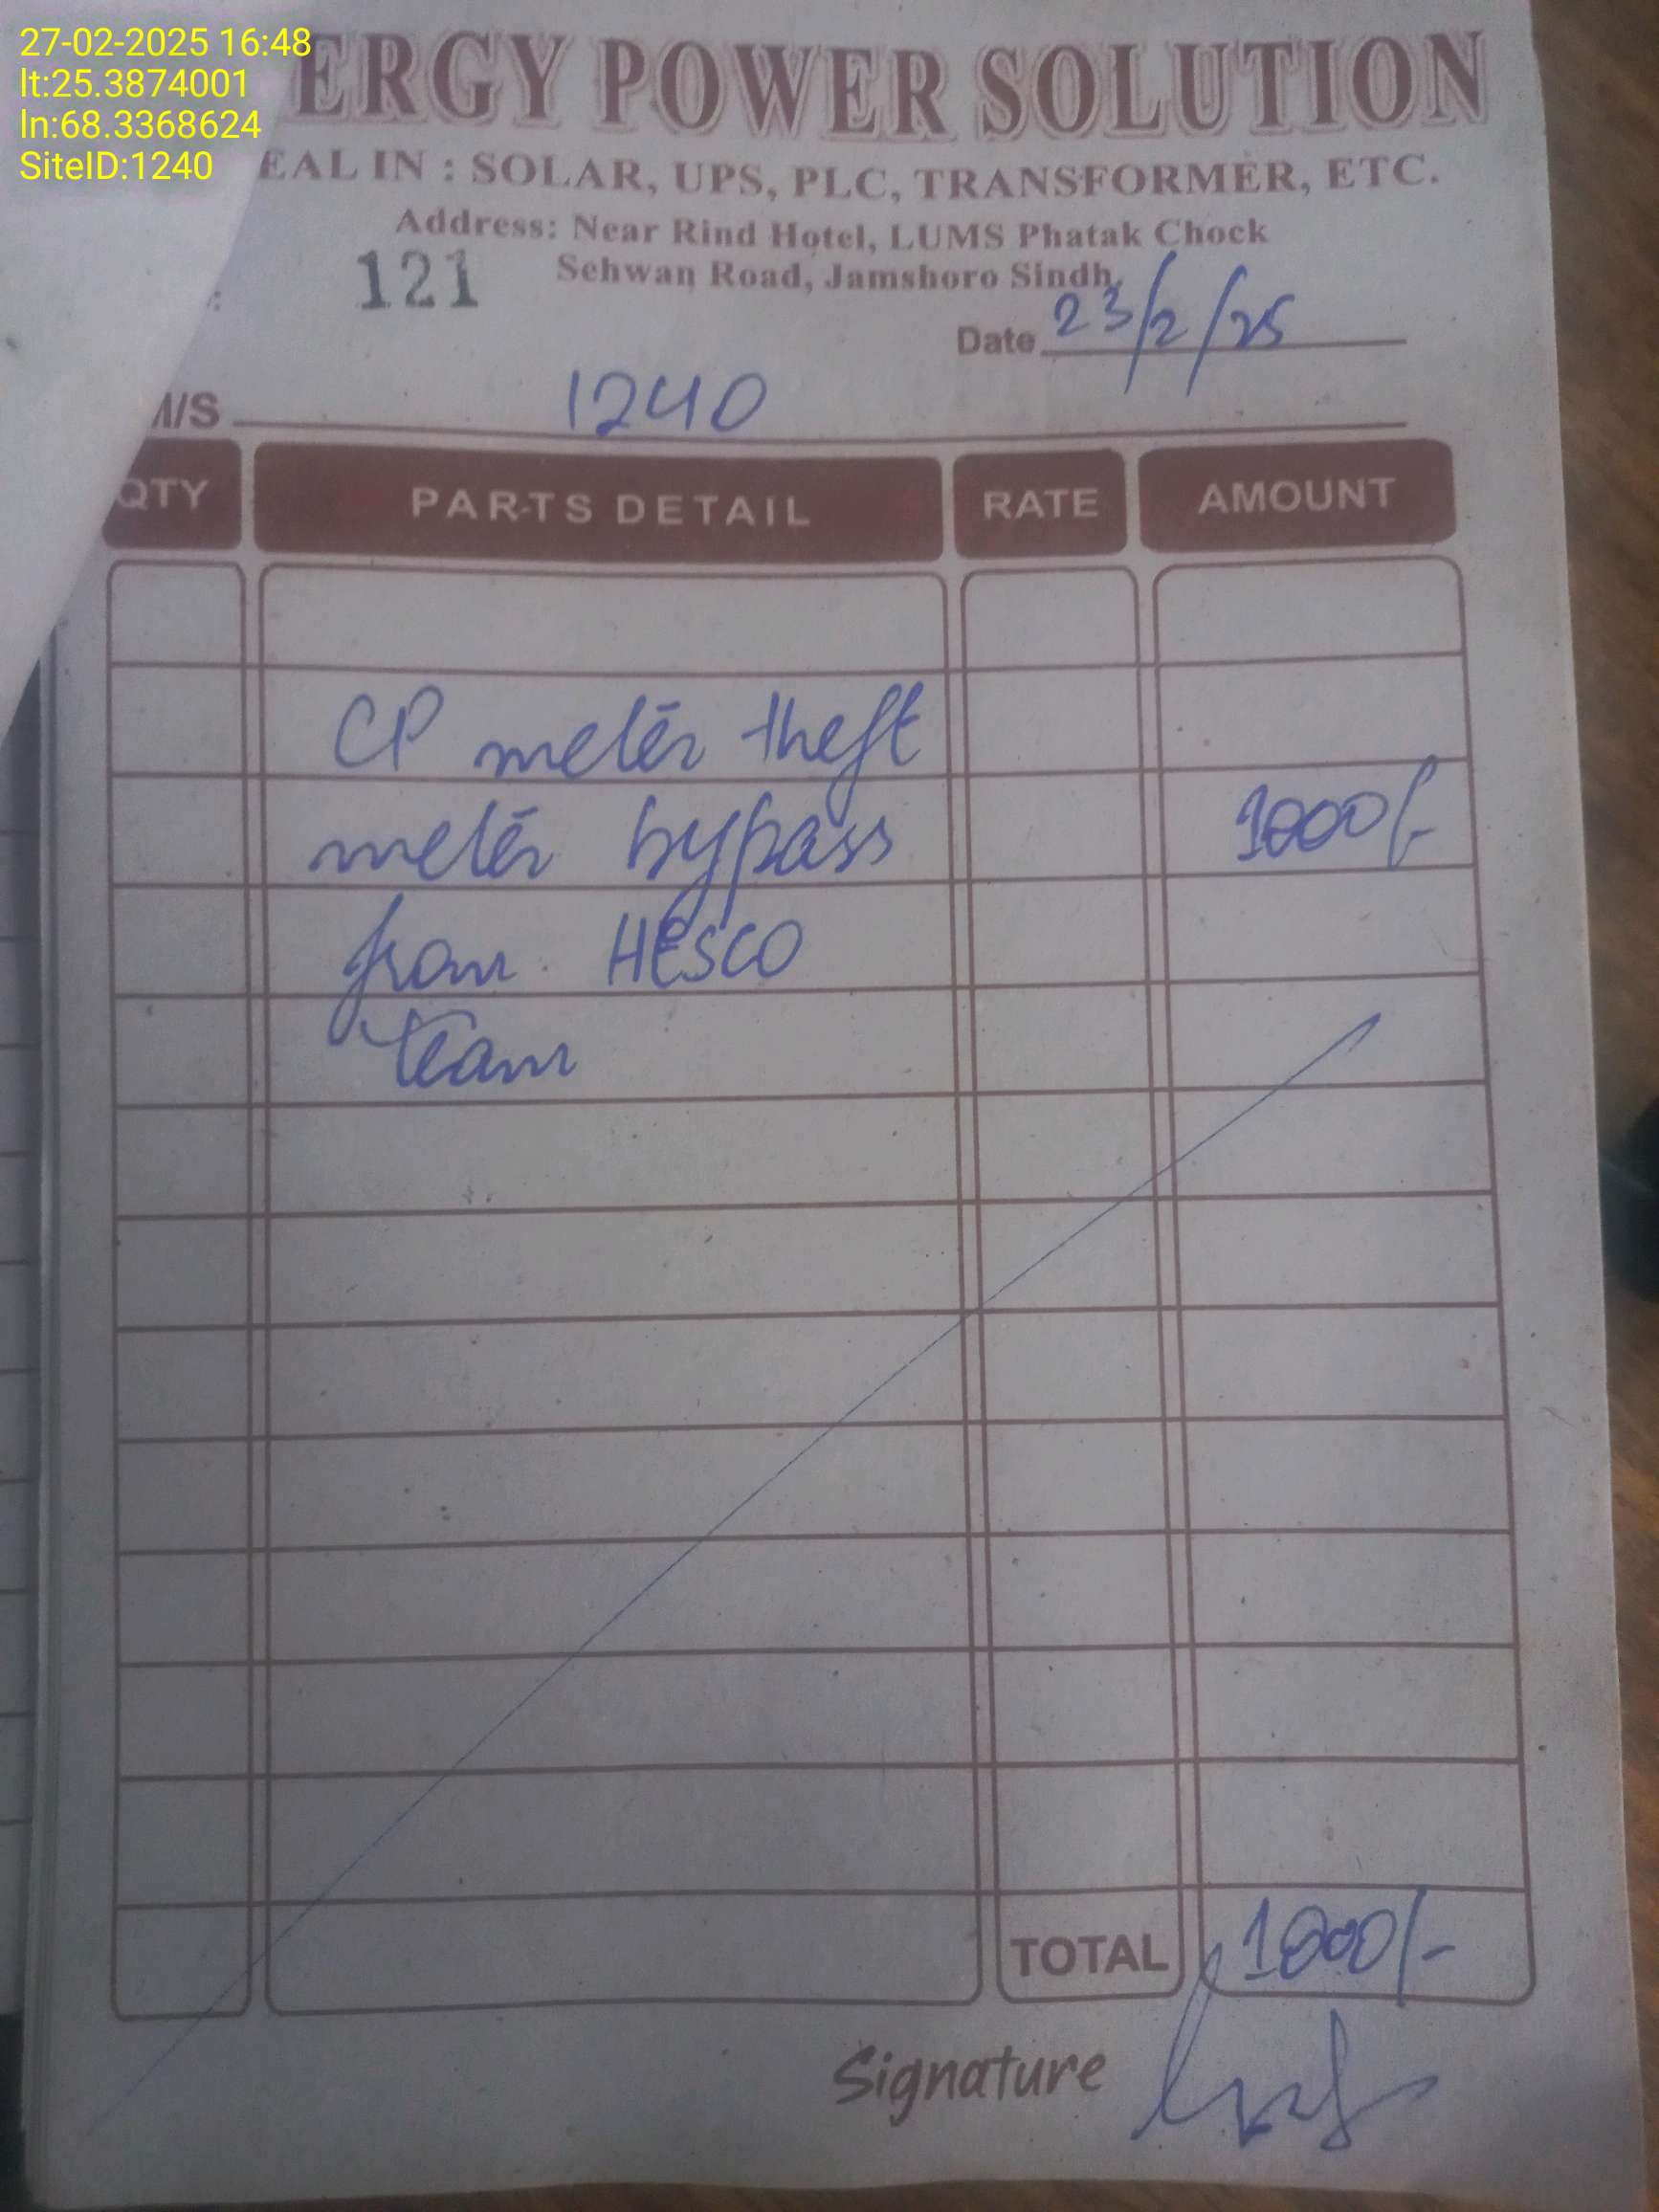 27-02-2025 16:48
lt:25.3874001
ln:68.3368624
SiteID:1240
ERGY POWER SOLUTION
EAL IN : SOLAR, UPS, PLC, TRANSFORMER, ETC.
Address: Near Rind Hotel, LUMS Phatak Chock
Sehwan Road, Jamshoro Sindh.
: 121
Date 23/2/25
M/S 1240
QTY PARTS DETAIL RATE AMOUNT
CP meter theft
meter bypass 1000/-
from HESCO
Team
TOTAL 1000/-
Signature